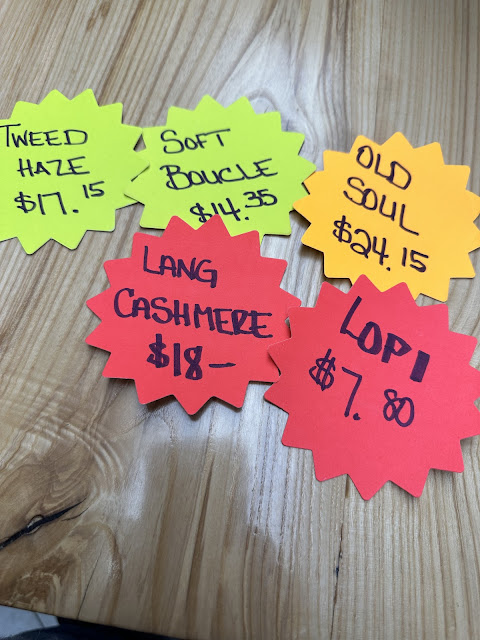 TWEED
HAZE
$17.15
SOFT
BOUCLE
$14.35
OLD
SOUL
$24.15
LANG
CASHMERE
$18—
LOPI
$7.80